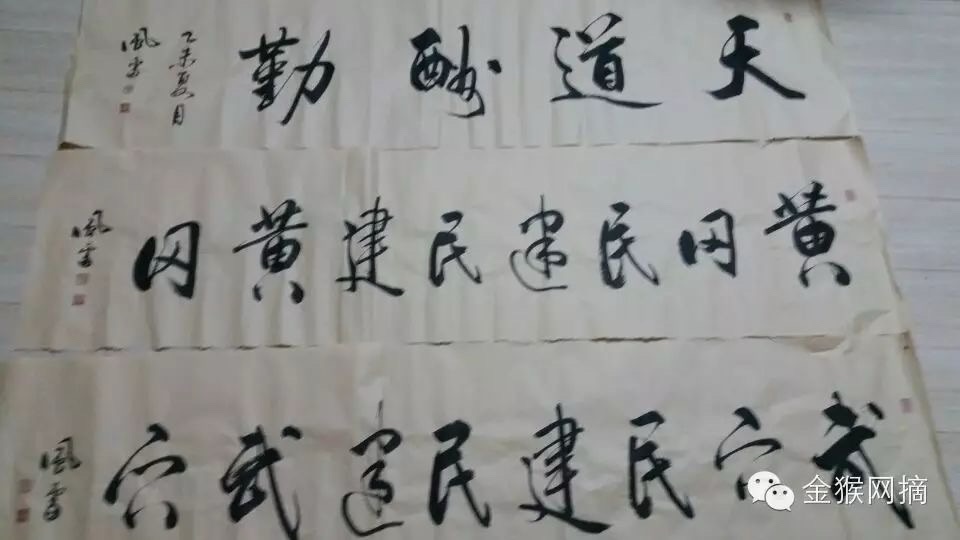 天道酬勤
乙未夏月
黄冈民建民建黄冈
武穴民建民建武穴
金猴网摘